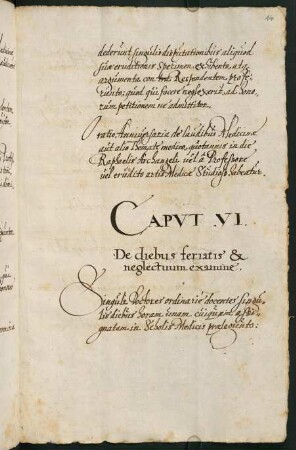 dederunt singulis disputationibus aliquod
suæ eruditionis Specimen exhibento, atq
argumenta contra Respondentem, profe-
rendo; quod qui facere neglexerit, ad hono-
rum petitionem ne admittitor.
Oratio Anniversaria de laudibus Medicinæ
aut alio themate medico, quotannis in die
Raphaelis Archangeli vel à Professore
vel erudito artis Medicæ Studioso habeatur.
CAPVT VI.
De diebus feriatis &
neglectuum examine.
Singuli Doctores ordinarie docentes singu-
lis diebus horam unam cuiq assi-
gnatam in Scholis Medicis prælegunto: